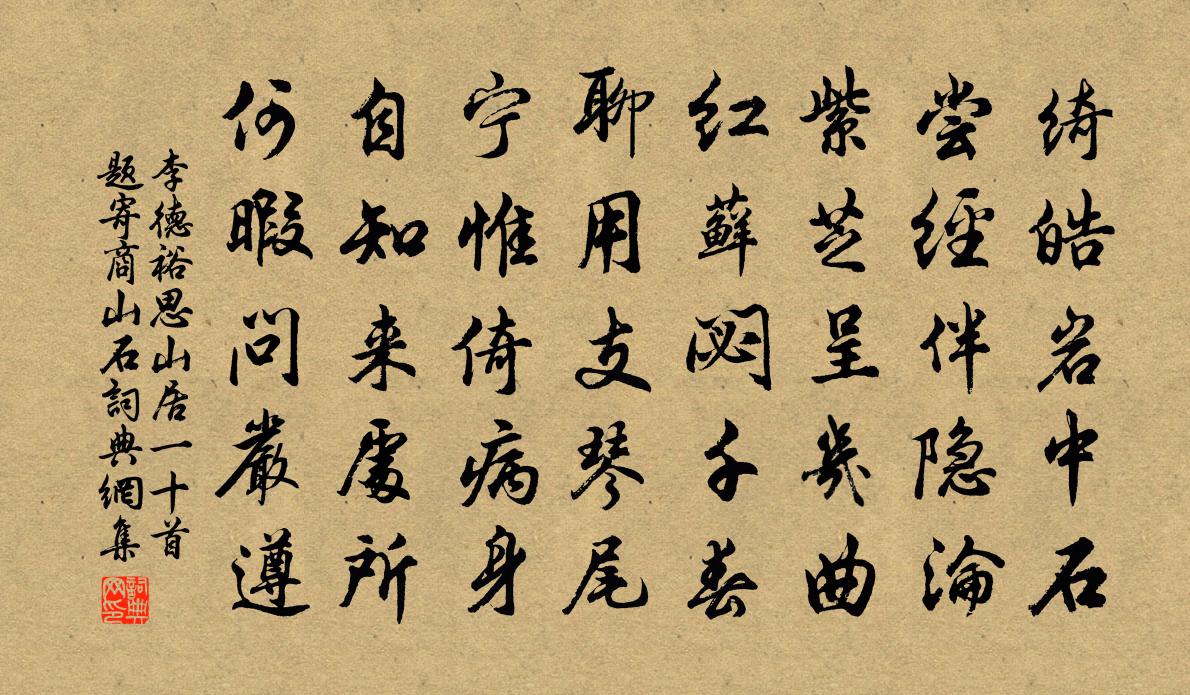 绮皓岩中石
尝經伴隐淪
紫芝呈幾曲
红藓閟千春
聊用支琴尾
宁惟倚病身
自知来處所
何暇問嚴遵
李德裕思山居一十首
题寄商山石詞典網集
詞典网印